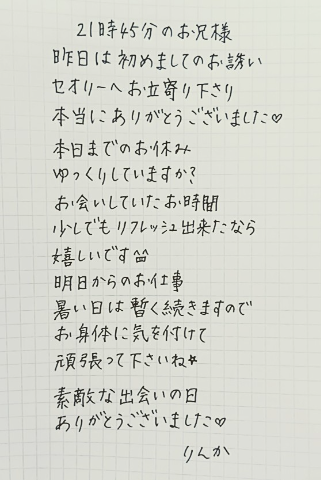 21時45分のお兄様
昨日は初めましてのお誘い
セオリーへお立寄り下さり
本当にありがとうございました♡
本日までのお休み
ゆっくりしていますか?
お会いしていたお時間
少しでもリフレッシュ出来たなら
嬉しいです^^
明日からのお仕事
暑い日は暫く続きますので
お身体に気を付けて
頑張って下さいね★
素敵な出会いの日
ありがとうございました♡
りんか